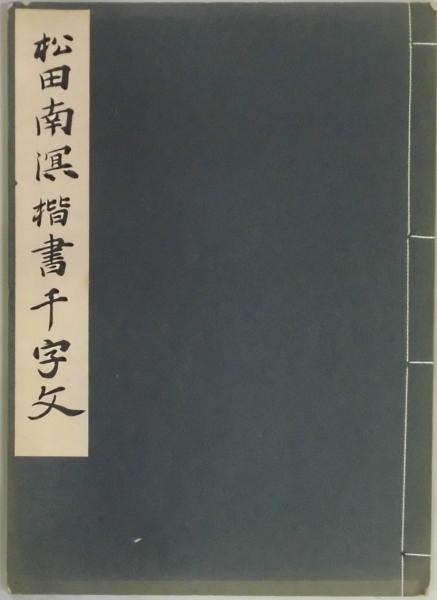 松田南溟楷書千字文